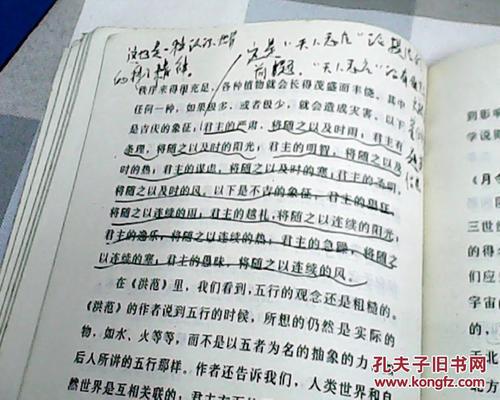 这也是一种认识世界
的精神
这是"天人感应"论
前题。"天人感应"论
秩序来得很充足,各种植物就会长得茂盛而丰饶。其中
任何一种,如果很多,或者很少,就会造成灾害。以下
是吉庆的象征:君主的严肃,将随之以及时雨;君主有
条理,将随之以及时的阳光;君主的明智,将随之以及
时的热;君主的谋虑,将随之以及时的寒;君主的圣明,
将随之以及时的风。以下是不吉的象征:君主的狂妄,
将随之以连续的雨;君主的越礼,将随之以连续的阳光;
君主的逸乐,将随之以连续的热;君主的急躁,将随之
以连续的寒;君主的愚昧,将随之以连续的风。
在《洪范》里,我们看到,五行的观念还是粗糙的。
《洪范》的作者说到五行的时候,所想的仍然是实际的
物,如水、火等等,而不是以五者为名的抽象的力
后人所讲的五行那样。作者还告诉我们,人类世界和自
然世界是互相关联的;君主方面的
到影响
学说则
《月令
三世纪
的得名
们应
宇宙
的,
于北
北方
孔夫子旧书网
www.kongfz.com